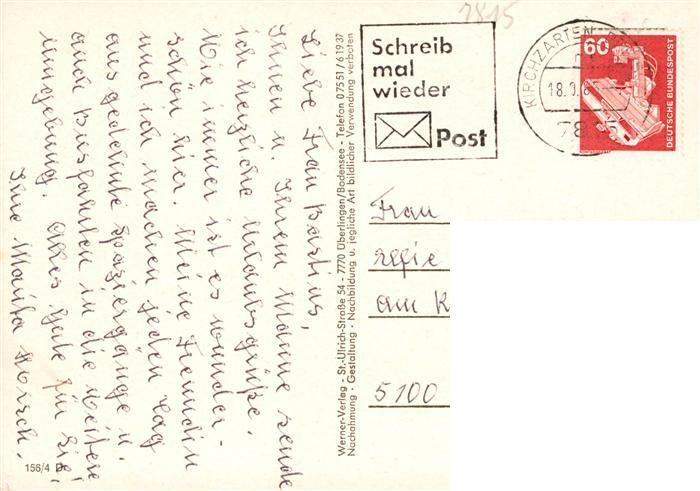 Liebe Frau Bastius,
Ihnen u. Ihrem Manne sende
ich herzliche Urlaubsgrüße.
Wie immer ist es wunder-
schön hier. Meine Freundin
und ich machen jeden Tag
ausgedehnte Spaziergänge u.
auch Busfahrten in die weitere
Umgebung. Alles Gute für Sie!
Ihre Marita
156/4 D
Werner-Verlag - St.-Ulrich-Straße 54 - 7770 Überlingen/Bodensee - Telefon 07551/61937
Nachahmung - Gestaltung - Nachbildung u. jegliche Art bildlicher Verwendung verboten
7815
Schreib
mal
wieder
Post
KIRCHZARTEN
18.
7815
60
DEUTSCHE BUNDESPOST
Frau
am K
5100